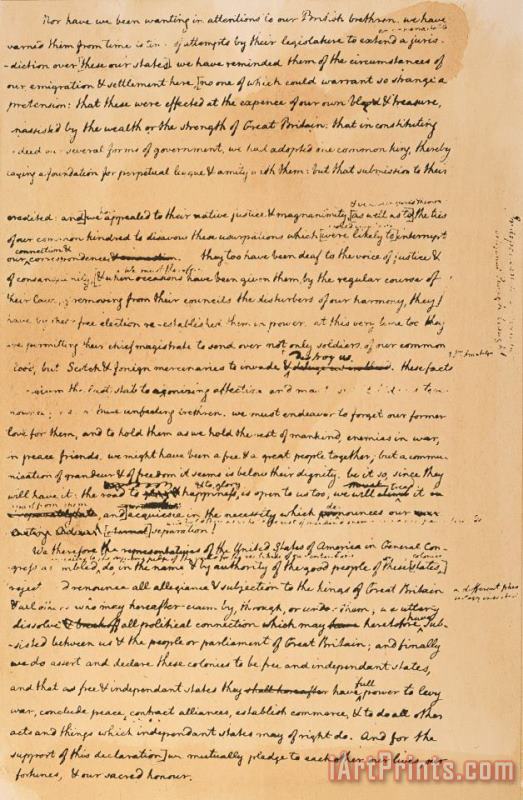 Nor have we been wanting in attentions to our British brethren. we have
warned them from time to time of attempts by their legislature to extend a juris
-diction over [these our states] we have reminded them of the circumstances of
our emigration & settlement here, [no one of which could warrant so strange a
pretension: that these were effected at the expence of our own blood & treasure,
unassisted by the wealth or the strength of Great Britain: that in constituting
indeed our several forms of government, we had adopted one common king, thereby
laying a foundation for perpetual league & amity with them: but that submission to their
credited: and] we appealed to their native justice & magnanimity, [as well as to] the ties
of our common kindred to disavow these usurpations which [were likely to] interrupt
connection &
our correspondence & connection. they too have been deaf to the voice of justice &
of consanguinity, [& when occasions have been given them, by the regular course of
their laws, of removing from their councils the disturbers of our harmony, they
have by their free election re-established them in power. at this very time too they
are permitting their chief magistrate to send over not only soldiers of our common
destroy us
blood, but Scotch & foreign mercenaries to invade & deluge us in blood. these facts
have given the last stab to agonizing affection and
renounce these unfeeling brethren. we must endeavor to forget our former
love for them, and to hold them as we hold the rest of mankind, enemies in war,
in peace friends. we might have been a free & a great people together; but a commu-
nication of grandeur & of freedom it seems is below their dignity. be it so, since they
& to glory
will have it: the road to glory & happiness, is open to us too; we will climb it
and] acquiesce in the necessity which denounces our
[eternal] separation!
We therefore the representatives of the United States of America in General Con-
gress assembled, do in the name & by authority of the good people of these [states,]
reject and renounce all allegiance & subjection to the kings of Great Britain
& all others who may hereafter claim by, through, or under them; we utterly
have
dissolve & break off all political connection which may have heretofore sub-
-sisted between us & the people or parliament of Great Britain; and finally
we do assert and declare these colonies to be free and independant states,
full
and that as free & independant states they shall hereafter have power to levy
war, conclude peace, contract alliances, establish commerce, & to do all other
acts and things which independant states may of right do. And for the
support of this declaration] we mutually pledge to each other our lives, our
fortunes, & our sacred honour.
iArtPrints.com